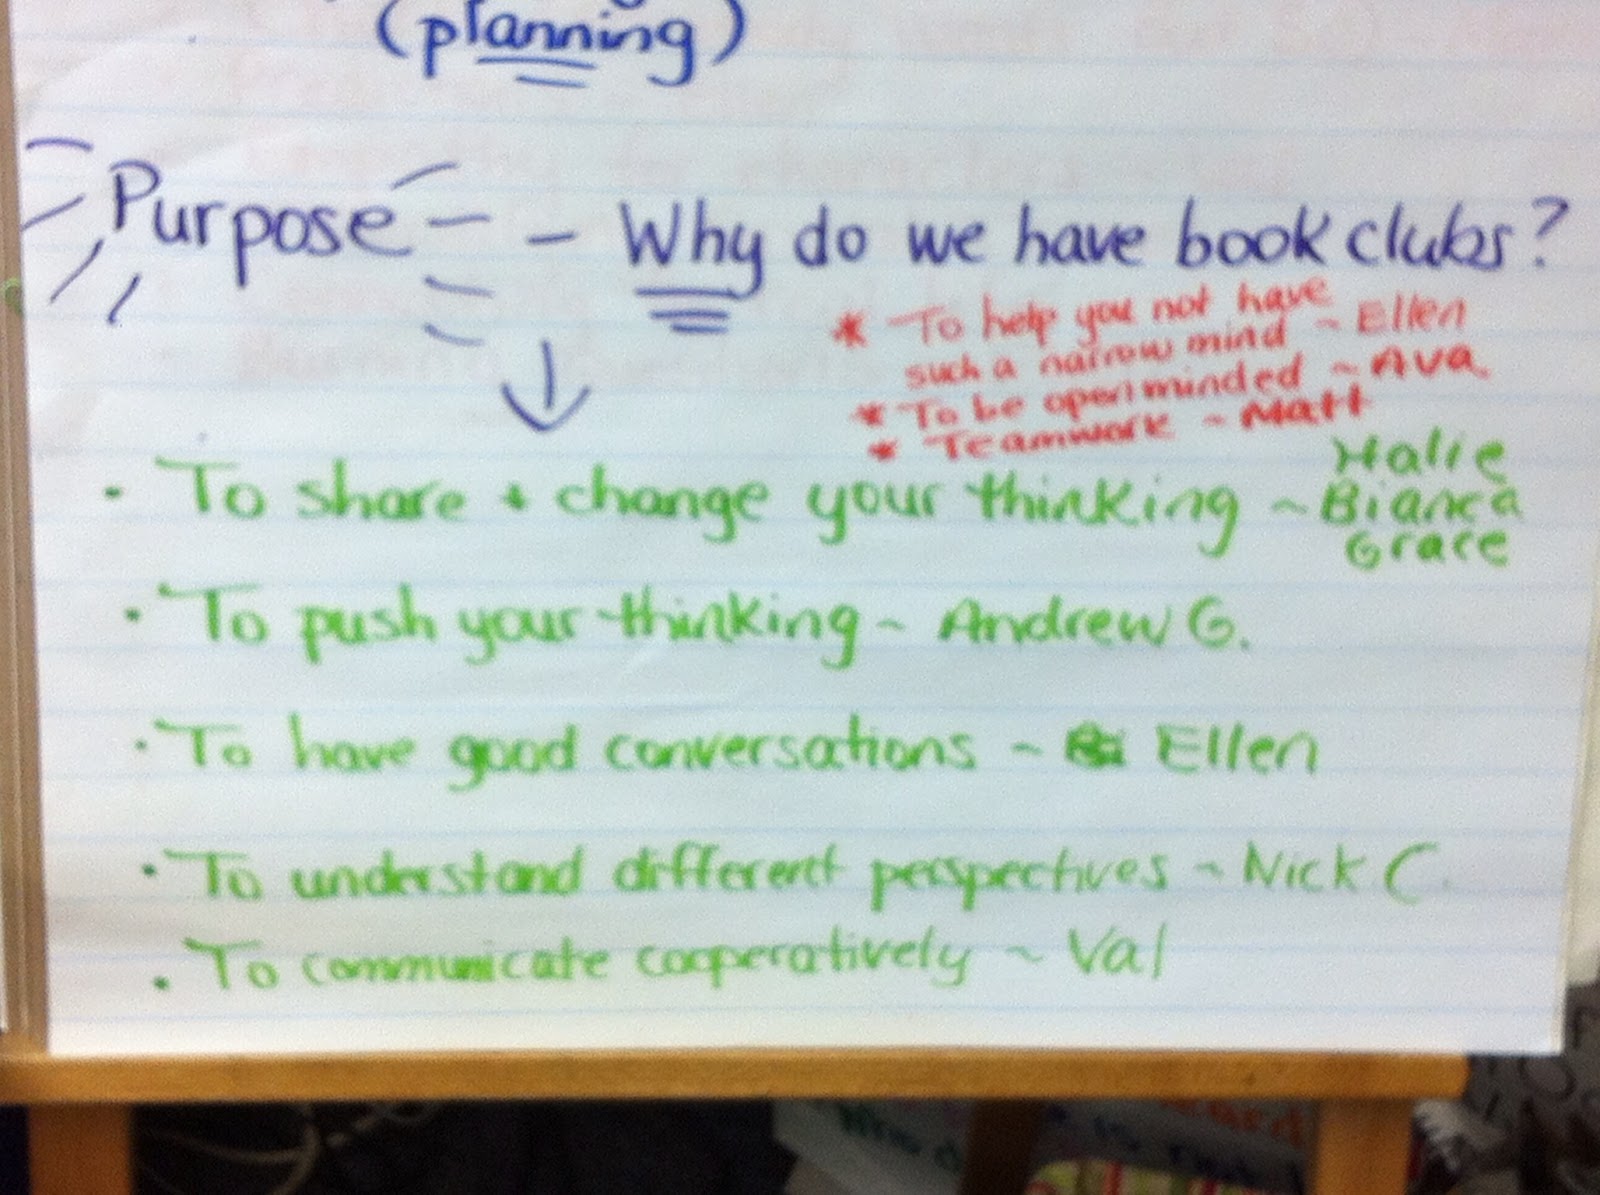 (planning)
Purpose - Why do we have book clubs?
* To help you not have
such a narrow mind ~ Ellen
* To be open minded ~ Ava
* Teamwork ~ Matt
Halie
• To share + change your thinking ~ Bianca
Grace
• To push your thinking ~ Andrew G.
• To have good conversations ~ Ellen
• To understand different perspectives ~ Nick C.
• To communicate cooperatively ~ Val